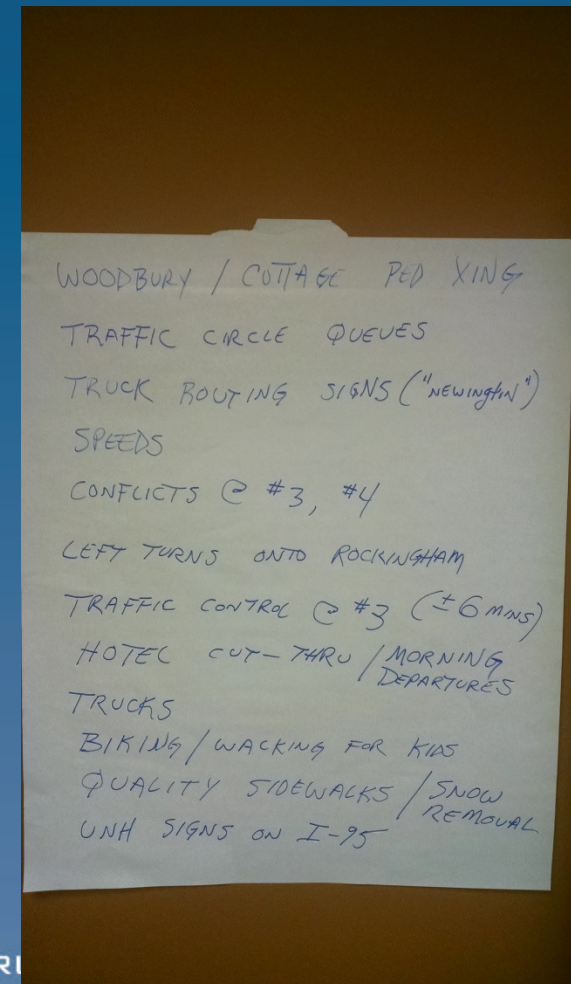 WOODBURY / COTTAGE PED XING
TRAFFIC CIRCLE QUEUES
TRUCK ROUTING SIGNS ("NEWINGTIN")
SPEEDS
CONFLICTS @ #3, #4
LEFT TURNS ONTO ROCKINGHAM
TRAFFIC CONTROL @ #3 (±6 MINS)
HOTEL CUT-THRU / MORNING
DEPARTURES
TRUCKS
BIKING / WALKING FOR KIDS
QUALITY SIDEWALKS / SNOW
REMOVAL
UNH SIGNS ON I-95